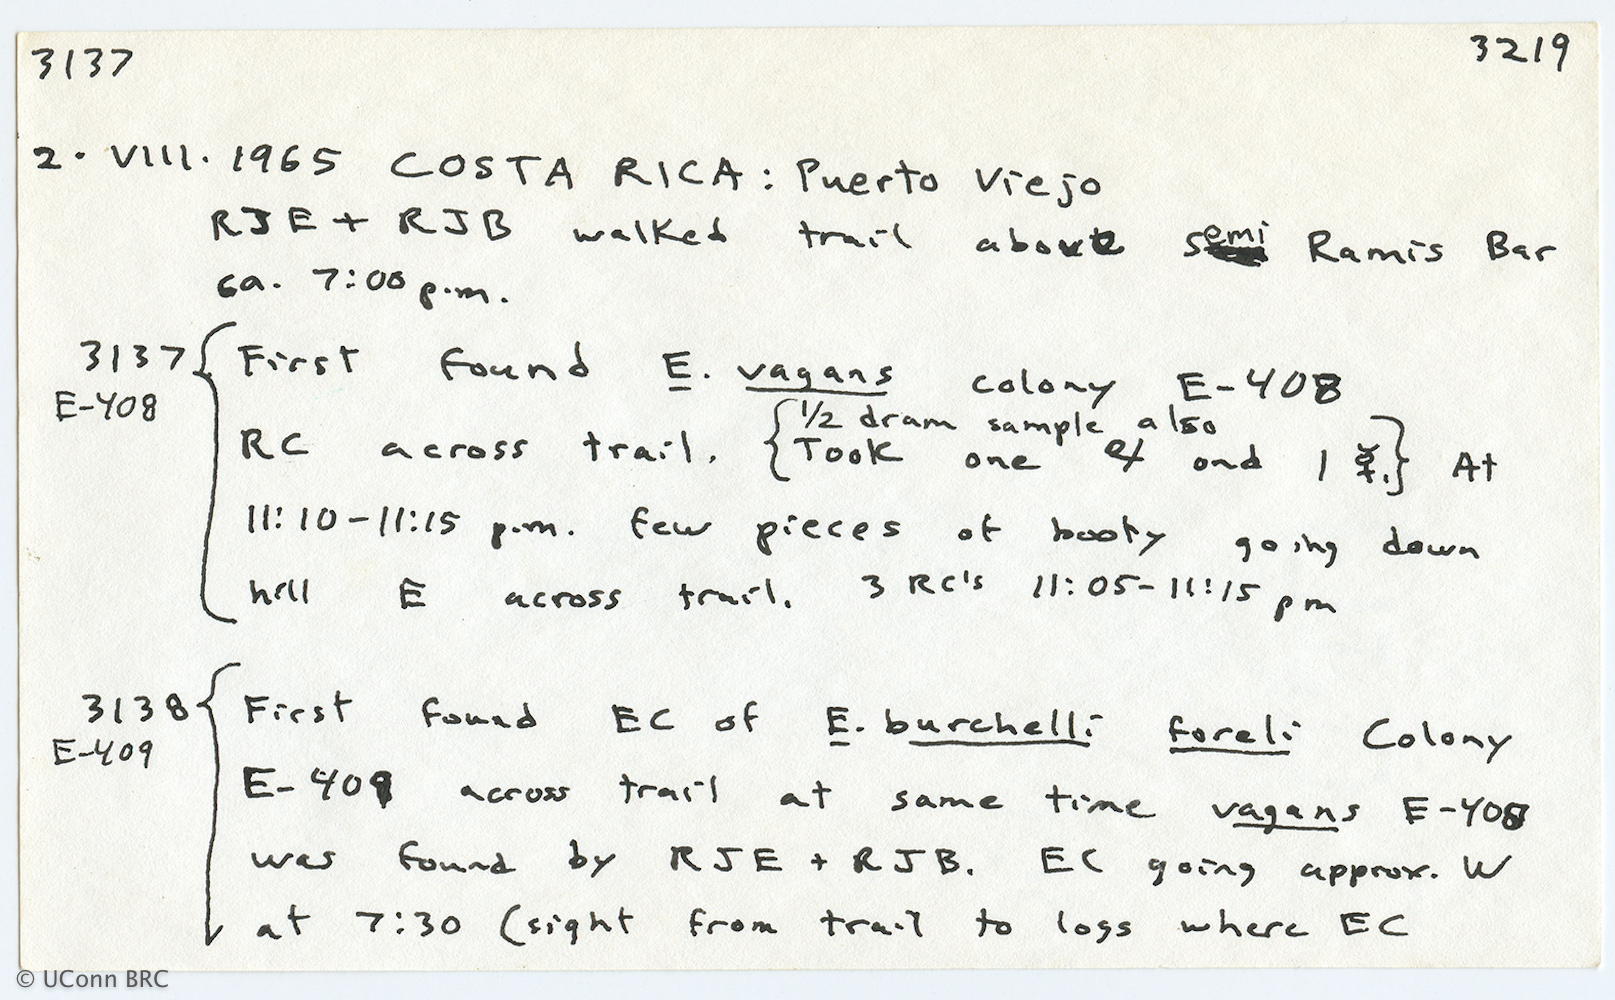 3137 3219
2. VIII. 1965 COSTA RICA: Puerto Viejo
RJE + RJB walked trail above semi Ramis Bar
ca. 7:00 p.m.
3137 First found E. vagans colony E-408
E-408
1/2 dram sample also
RC across trail. {Took one and 1 ☿.} At
11:10-11:15 p.m. few pieces of booty going down
hill E across trail. 3 RC's 11:05-11:15 pm
3138 First found EC of E. burchelli foreli Colony
E-409
E-409 across trail at same time vagans E-408
was found by RJE + RJB. EC going approx. W
at 7:30 (sight from trail to logs where EC
© UConn BRC